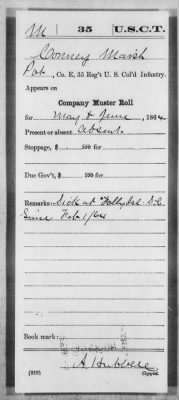 M | 35 | U.S.C.T.
Conney Marsh
Pvt., Co. E, 35 Reg't U. S. Col'd Infantry.
Appears on
Company Muster Roll
for May & June, 1864.
Present or absent Absent.
Stoppage, $ 100 for
Due Gov't, $ 100 for
Remarks: Sick at "Folly Isl. S.C.
Since Feb. 1/64
Book mark:
A. Hubbell
(858) Copyist.